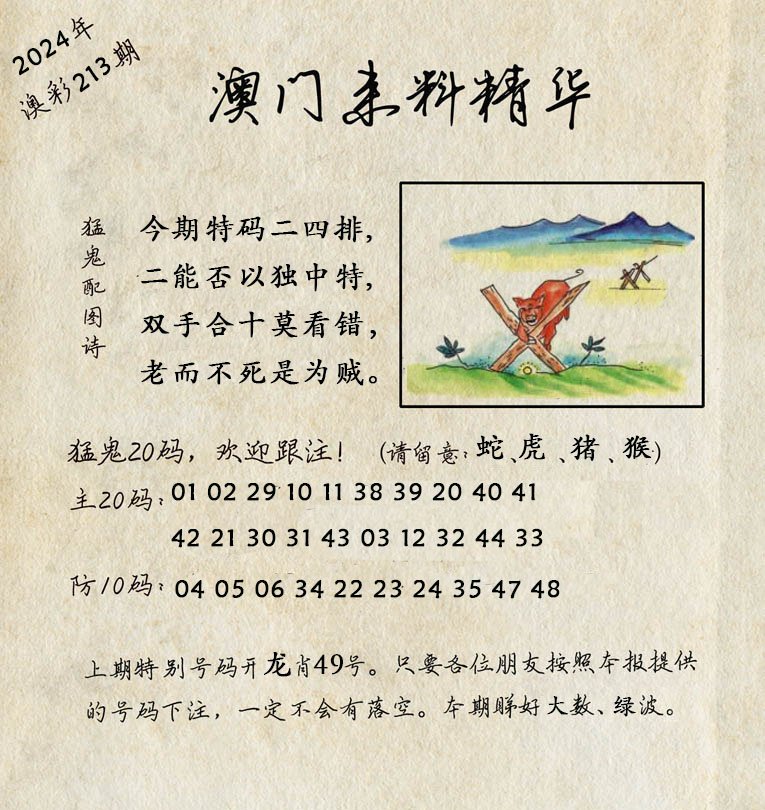 2024年
澳彩213期
澳门来料精华
猛鬼配图诗
今期特码二四排，
二能否以独中特，
双手合十莫看错，
老而不死是为贼。
猛鬼20码，欢迎跟注！（请留意：蛇、虎、猪、猴）
主20码：01 02 29 10 11 38 39 20 40 41
42 21 30 31 43 03 12 32 44 33
防10码：04 05 06 34 22 23 24 35 47 48
上期特别号码开龙肖49号。只要各位朋友按照本报提供
的号码下注，一定不会有落空。本期睇好大数、绿波。